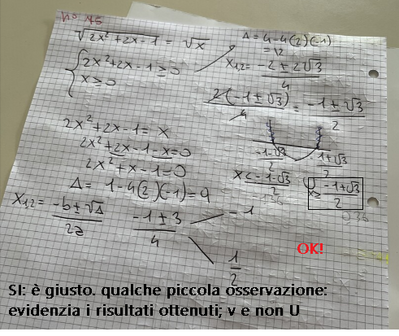 n° 46
√2x²+2x-1 = √x
{ 2x²+2x-1≥0
x≥0
Δ= 4-4(2)(-1)
=12
X1,2= -2±2√3 / 4
2(-1±√3) / 4 = -1±√3 / 2
-1-√3 / 2
-1+√3 / 2
x≤ -1-√3 / 2 ∪ x≥ -1+√3 / 2
0.36
2x²+2x-1= x
2x²+2x-1-x=0
2x²+x-1=0
Δ= 1-4(2)(-1)=9
X1,2= -b±√Δ / 2a
-1±3 / 4
-1
1/2
OK!
SI: è giusto. qualche piccola osservazione:
evidenzia i risultati ottenuti; v e non U